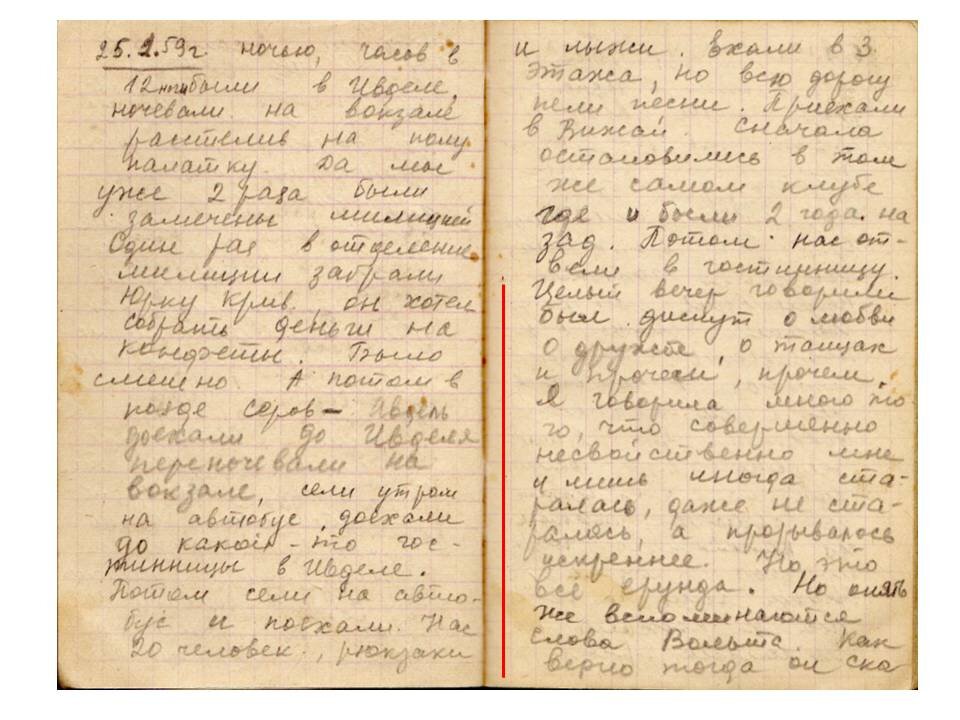 25.1.59г. ночью, часов в
12 прибыли в Ивдель,
ночевали на вокзале
расстелив на полу
палатку. Да мы
уже 2 раза были
замечены милицией
Один раз в отделение
милиции забрали
Юрку Крив., он хотел
собрать деньги на
конфеты. Было
смешно. А потом в
поезде Серов - Ивдель
доехали до Ивделя
переночевали на
вокзале, сели утром
на автобус, доехали
до какой-то гос-
тинницы в Ивделе.
Потом сели на авто-
бус и поехали. Нас
20 человек, рюкзаки
и лыжи. Ехали в 3
этажа, но всю дорогу
пели песни. Приехали
в Вижай. Сначала
остановились в том
же самом клубе
где и были 2 года на
зад. Потом нас от-
вели в гостинницу.
Целый вечер говорили
был диспут о любви
о дружбе, о танцах
и прочем, прочем.
Я говорила много то
го, что совершенно
несвойственно мне
и лишь иногда ста-
ралась, даже не ста-
ралась, а прорывалось
искреннее. Но это
всё ерунда. Но опять
же вспоминаются
слова Вольта. Как
верно тогда он ска